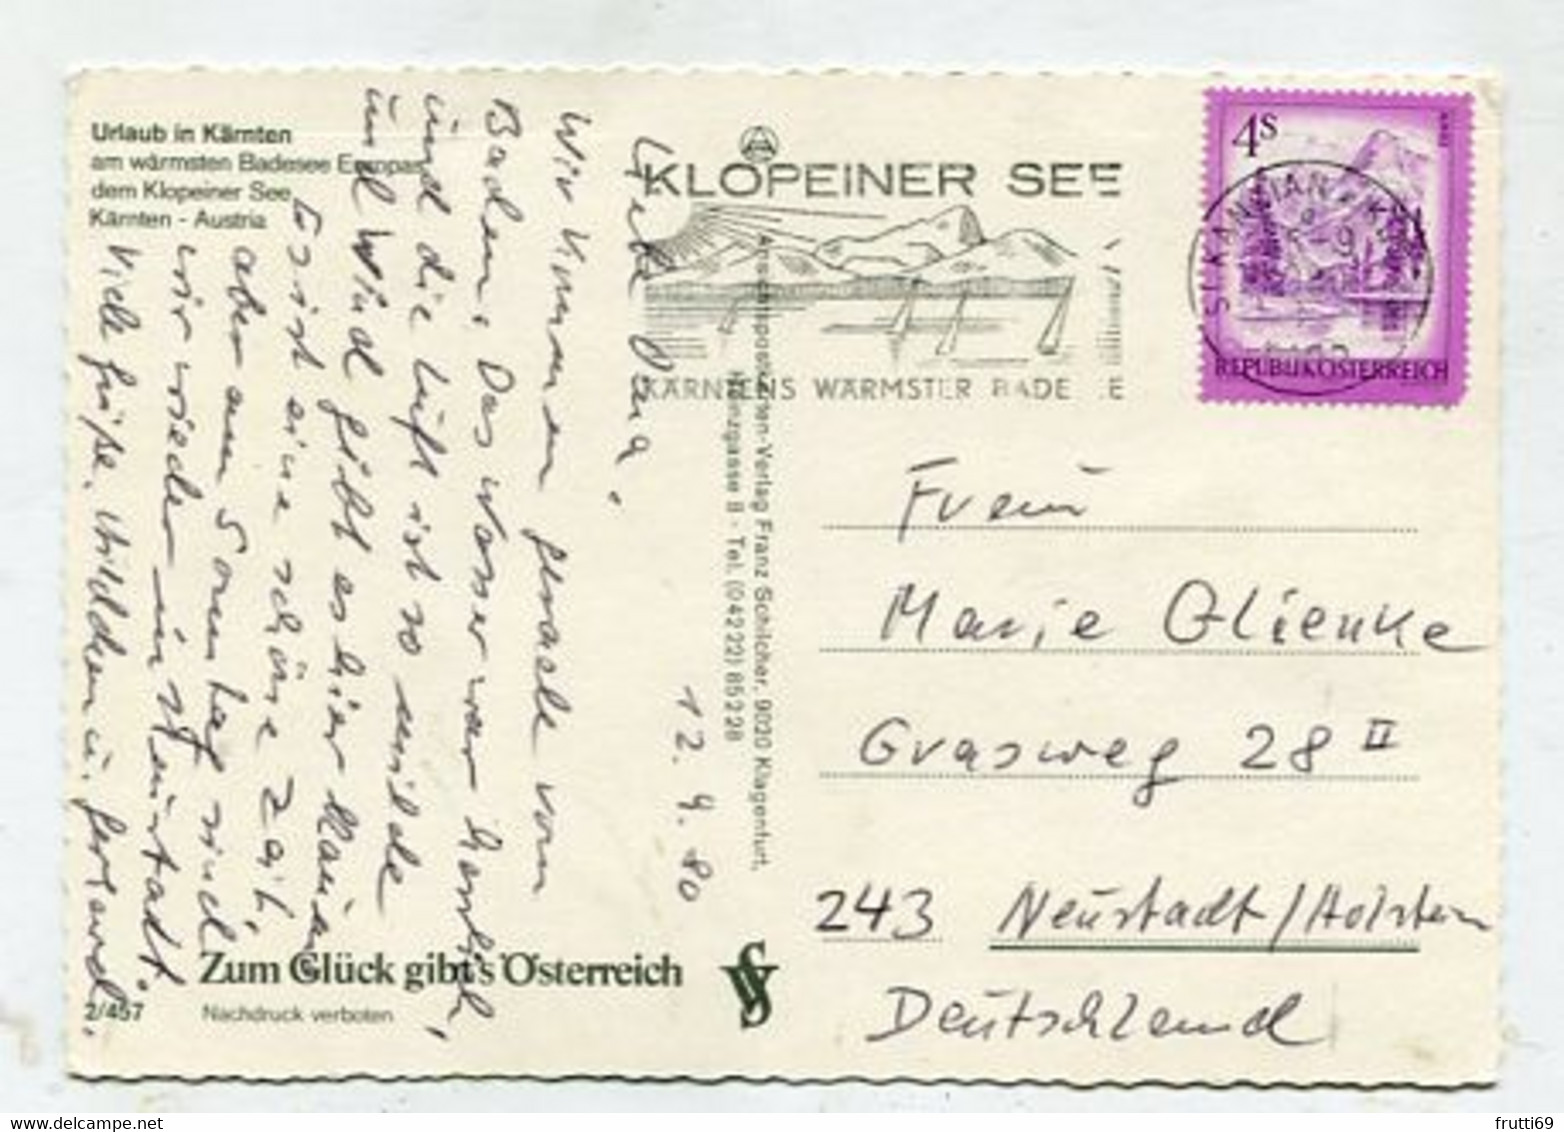 Urlaub in Kärnten
am wärmsten Badesee Europas
dem Klopeiner See
Kärnten - Austria
KLOPEINER SEE
KÄRNTENS WÄRMSTER BADE E
4S
REPUBLIK ÖSTERREICH
ST. KANZIAN
12. 9. 80
Liebe Oma,
Wir kommen gerade vom
Baden. Das Wasser war herrlich,
und die Luft ist so milde
und Wind gibt es hier kaum.
Es ist eine schöne Zeit,
aber am Sonntag sind
wir wieder in Neustadt.
Viele Grüße, Hildchen u. Gerhard.
Ansichtspostkarten-Verlag Franz Schilcher, 9020 Klagenfurt,
Heinzgasse 8 - Tel. (04222) 85228
Frau
Marie Glienke
Grasweg 28 II
243 Neustadt/Holstein
Deutschland
Zum Glück gibt's Österreich
2/457 Nachdruck verboten
frutti69